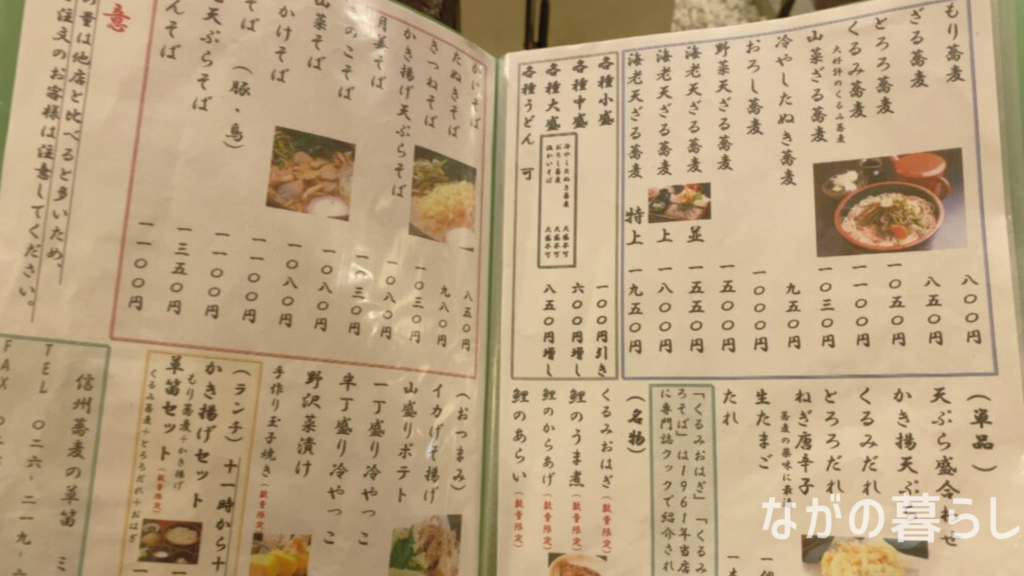 もり蕎麦 八〇〇円
ざる蕎麦 八五〇円
とろろ蕎麦 一〇五〇円
くるみ蕎麦 一一〇〇円
大好評のくるみ蕎麦
山菜ざる蕎麦 一〇三〇円
冷やしたぬき蕎麦 九五〇円
おろし蕎麦 一〇〇〇円
野菜天ざる蕎麦 一五〇〇円
海老天ざる蕎麦 並 一五五〇円
海老天ざる蕎麦 上 一八〇〇円
海老天ざる蕎麦 特上 一九五〇円
各種小盛 一〇〇円引き
各種中盛 六〇〇円増し
各種大盛 八五〇円増し
各種うどん 可
冷やしたぬき蕎麦 大盛不可
おろし蕎麦 大盛不可
温かいそば 大盛不可
かけそば 八五〇円
たぬきそば 九八〇円
きつねそば 一〇三〇円
かき揚げ天ぷらそば
月見そば
きのこそば
山菜そば
かけそば
そば (豚・鳥)
天ぷらそば
んそば
一一〇〇円
一三五〇円
一一〇〇円
一一〇〇円
一〇八〇円
一〇八〇円
一〇三〇円
意
の量は他店と比べると多いため、
注文のお客様は注意してください。
(単品)
天ぷら盛合わせ
かき揚天ぷ
くるみだれ
とろろだれ
ねぎ唐辛子
蕎麦の薬味に最
生たまご
たれ
「くるみおはぎ」「くるみ
ろそば」は1961年当店
に専門誌クックで紹介され
(名物)
くるみおはぎ (数量限定)
鯉のうま煮 (数量限定)
鯉のからあげ (数量限定)
鯉のあらい (数量限定)
(おつまみ)
イカげそ揚げ
山盛りポテト
一丁盛り冷やっこ
半丁盛り冷やっこ
野沢菜漬け
手作り玉子焼き (数量限定)
(ランチ) 十一時から十
かき揚げセット
もり蕎麦+かき揚げ
草笛セット (数量限定)
くるみ蕎麦+とろろだれ+おはぎ
信州蕎麦の草笛 ミ
TEL 〇二六-二一九-
FAX 〇二六
ながの暮らし